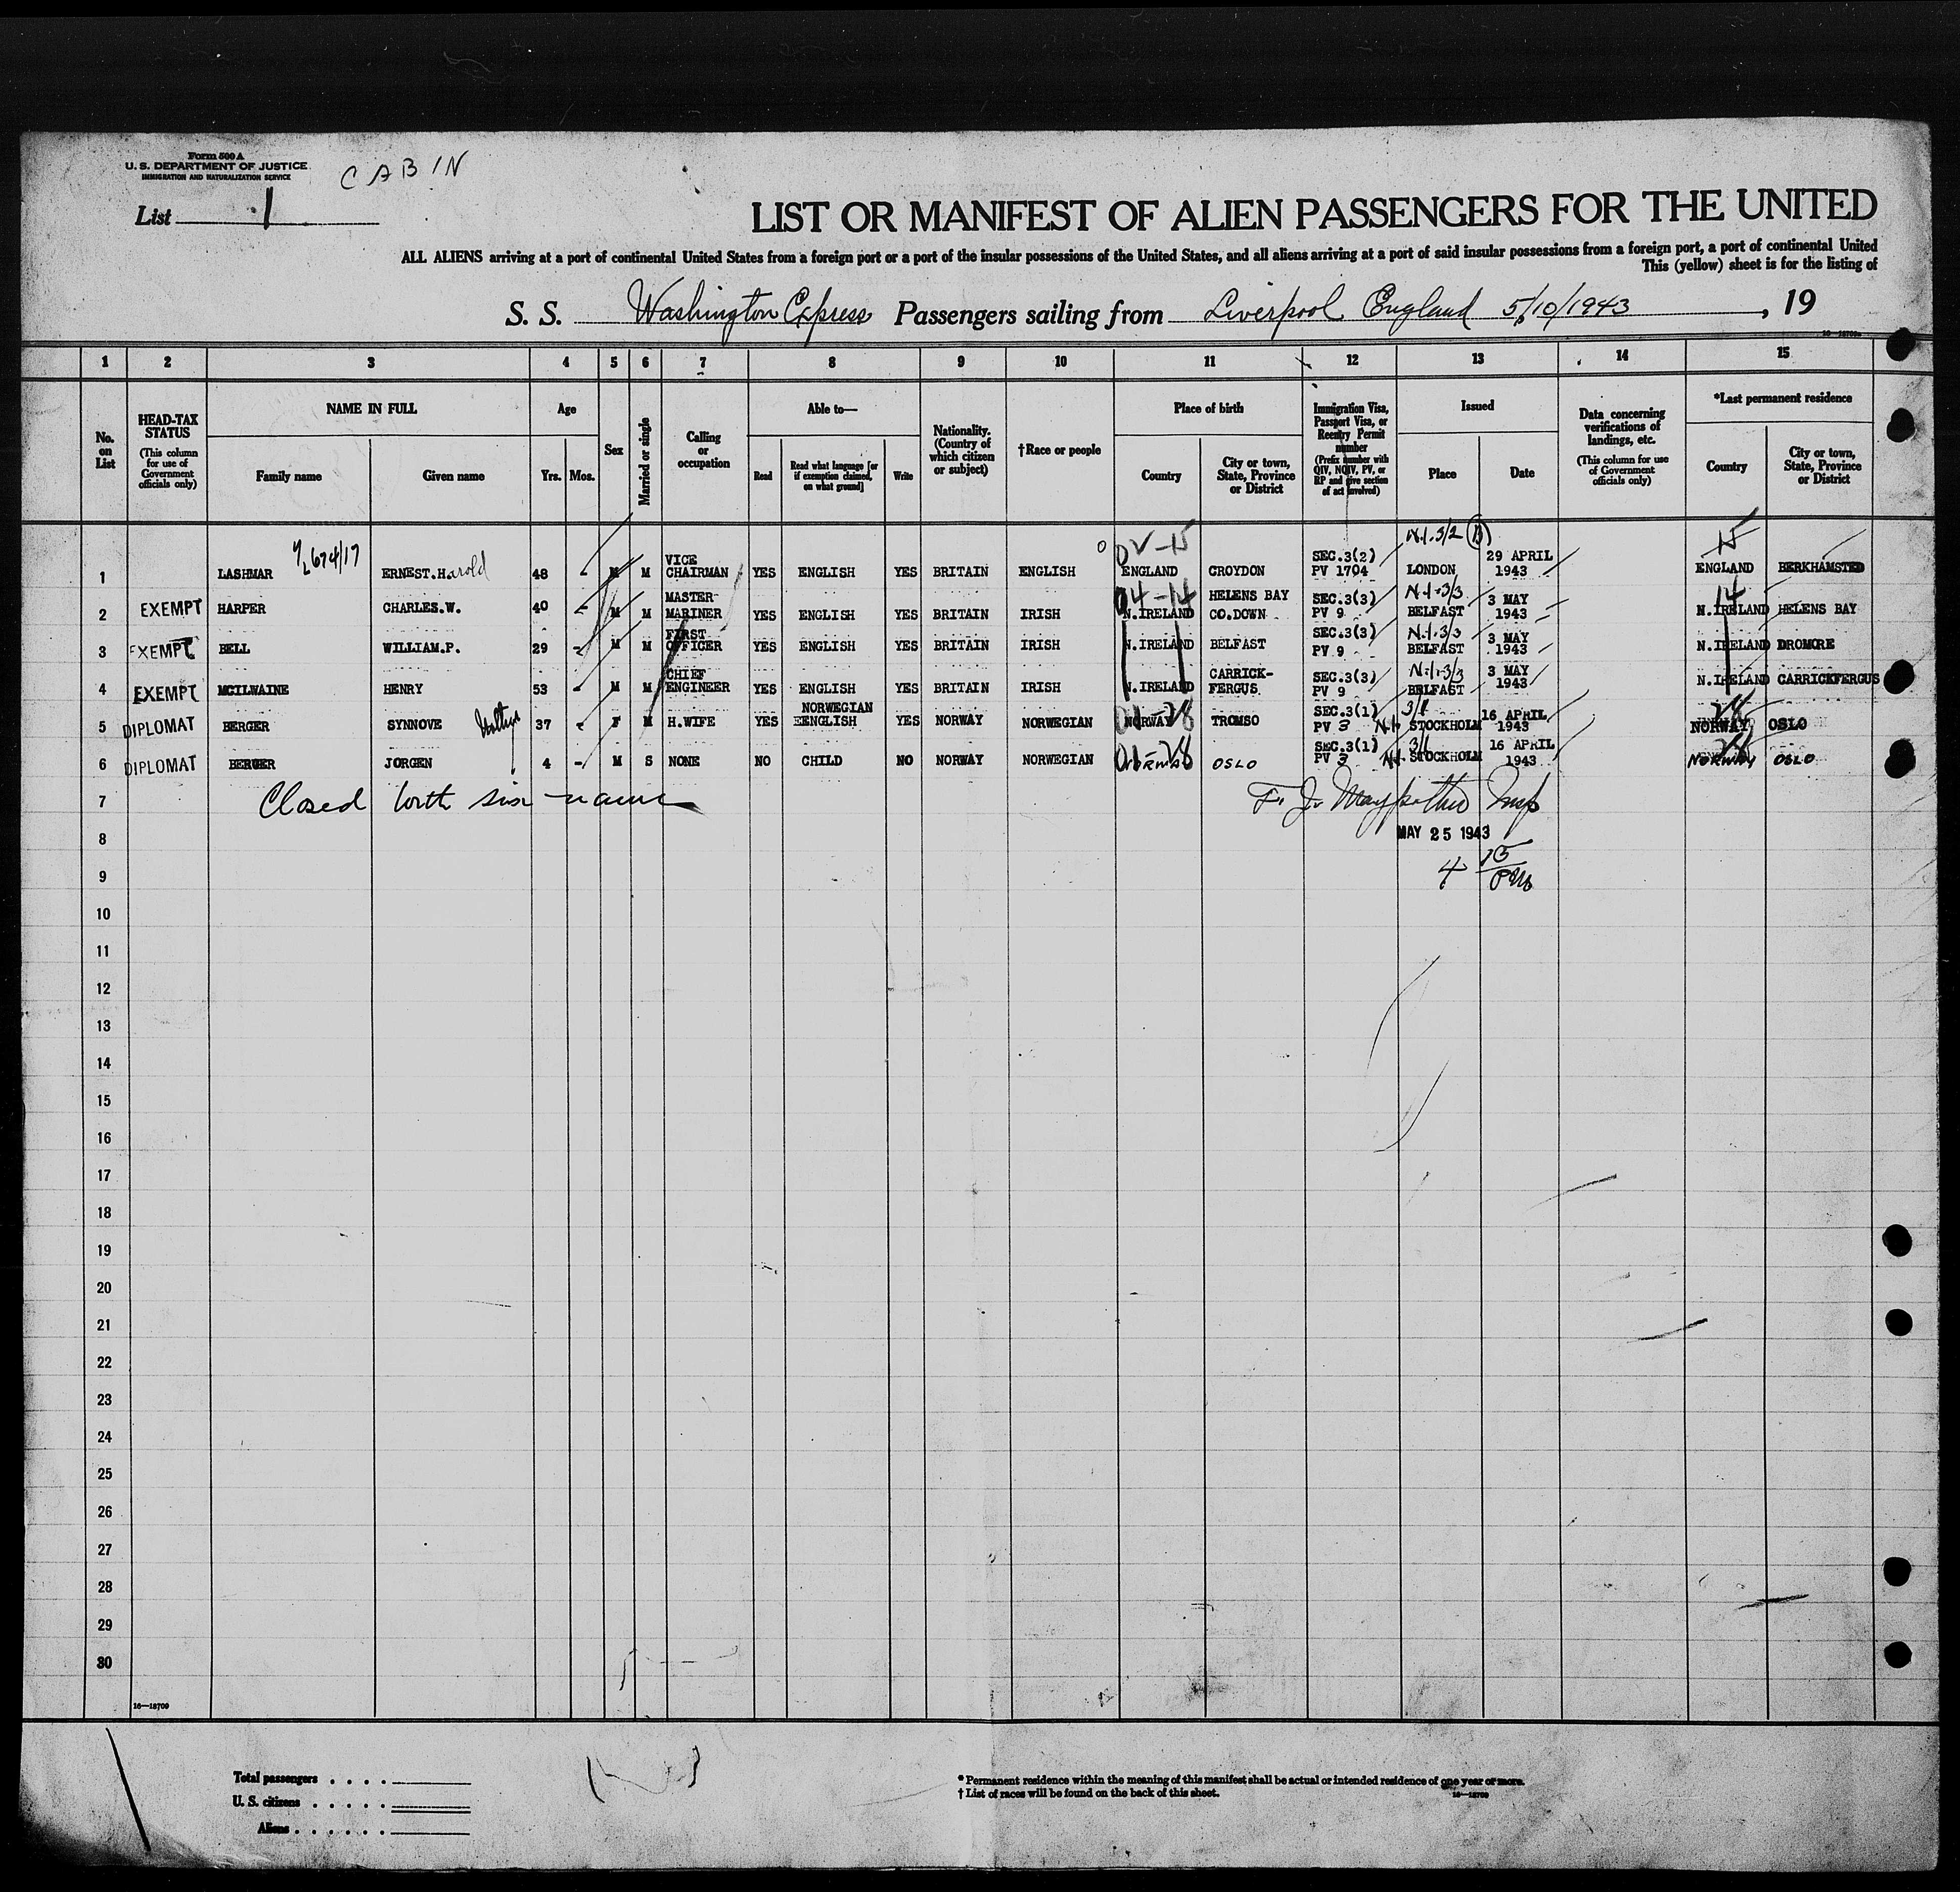 Form 500 A
U. S. DEPARTMENT OF JUSTICE
IMMIGRATION AND NATURALIZATION SERVICE
CABIN
List 1
LIST OR MANIFEST OF ALIEN PASSENGERS FOR THE UNITED
ALL ALIENS arriving at a port of continental United States from a foreign port or a port of the insular possessions of the United States, and all aliens arriving at a port of said insular possessions from a foreign port, a port of continental United
This (yellow) sheet is for the listing of
S. S. Washington Express Passengers sailing from Liverpool England 5/10/1943, 19
16—18709
1 2 3 4 5 6 7 8 9 10 11 12 13 14 15
No. on List
HEAD-TAX STATUS (This column for use of Government officials only)
NAME IN FULL
Family name Given name
Age
Yrs. Mos.
Sex
Married or single
Calling or occupation
Able to—
Read Read what language [or if exemption claimed, on what ground] Write
Nationality. (Country of which citizen or subject)
†Race or people
Place of birth
Country City or town, State, Province or District
Immigration Visa, Passport Visa, or Reentry Permit number (Prefix number with QIV, NQIV, PV, or RP and give section of act involved)
Issued
Place Date
Data concerning verifications of landings, etc. (This column for use of Government officials only)
*Last permanent residence
Country City or town, State, Province or District
1 LASHMAR ERNEST.Harold 48 - M M VICE CHAIRMAN YES ENGLISH YES BRITAIN ENGLISH ENGLAND CROYDON SEC.3(2) PV 1704 N.I.3/2 (B) LONDON 29 APRIL 1943 15 ENGLAND BERKHAMSTED
2 EXEMPT HARPER CHARLES.W. 40 - M M MASTER MARINER YES ENGLISH YES BRITAIN IRISH 04-14 N.IRELAND HELENS BAY CO.DOWN SEC.3(3) PV 9 N.I.3/3 BELFAST 3 MAY 1943 14 N.IRELAND HELENS BAY
3 EXEMPT BELL WILLIAM.P. 29 - M M FIRST OFFICER YES ENGLISH YES BRITAIN IRISH N.IRELAND BELFAST SEC.3(3) PV 9 N.I.3/3 BELFAST 3 MAY 1943 N.IRELAND DROMORE
4 EXEMPT MCILWAINE HENRY 53 - M M CHIEF ENGINEER YES ENGLISH YES BRITAIN IRISH N.IRELAND CARRICK-FERGUS SEC.3(3) PV 9 N.I.3/3 BELFAST 3 MAY 1943 N.IRELAND CARRICKFERGUS
5 DIPLOMAT BERGER SYNNOVE 37 - F M H.WIFE YES NORWEGIAN ENGLISH YES NORWAY NORWEGIAN NORWAY TROMSO SEC.3(1) PV 3 N.I. 3/1 STOCKHOLM 16 APRIL 1943 NORWAY OSLO
6 DIPLOMAT BERGER JORGEN 4 - M S NONE NO CHILD NO NORWAY NORWEGIAN NORWAY OSLO SEC.3(1) PV 3 N.I. 3/1 STOCKHOLM 16 APRIL 1943 NORWAY OSLO
7 Closed with six names
8 MAY 25 1943
9 4 15 PM
10
11
12
13
14
15
16
17
18
19
20
21
22
23
24
25
26
27
28
29
30
16—18709
Total passengers . . . .
U. S. citizens . . . . .
Aliens . . . . . .
* Permanent residence within the meaning of this manifest shall be actual or intended residence of one year or more.
† List of races will be found on the back of this sheet.
16—18709